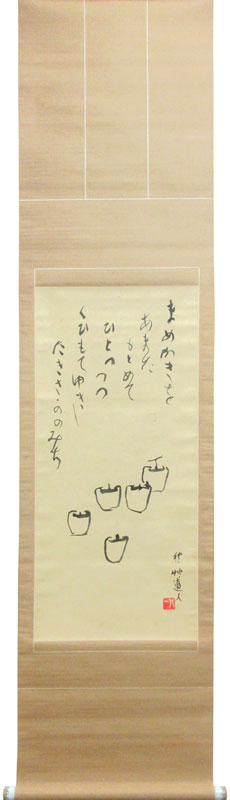 まめかきを
あまた
もとめて
ひとつつつ
くひもてゆきし
たきさかのみち
秋艸道人